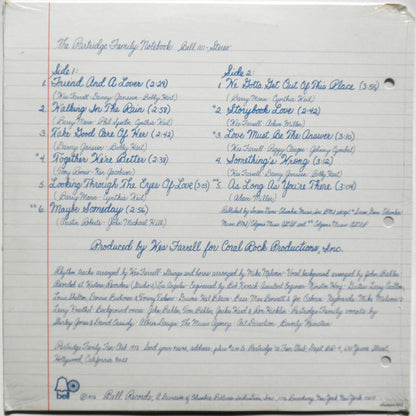 The Partridge Family Notebook Bell 1111 - Stereo
Side 1:
1. Friend And A Lover (2:29)
(Wes Farrell - Danny Janssen - Bobby Hart)
2. Walking In The Rain (2:58)
(Barry Mann - Phil Spector - Cynthia Weil)
3. Take Good Care Of Her (2:42)
(Danny Janssen - Bobby Hart)
*4. Together We're Better (2:38)
(Tony Romeo - Ken Jacobson)
5. Looking Through The Eyes Of Love (3:03)
(Barry Mann - Cynthia Weil)
**6. Maybe Someday (2:56)
(Austin Roberts - John Michael Hill)
Side 2:
1. We Gotta Get Out Of This Place (3:56)
(Barry Mann - Cynthia Weil)
*2. Storybook Love (2:42)
(Wes Farrell - Adam Miller)
*3. Love Must Be The Answer (3:10)
(Wes Farrell - Peggy Clinger - Johnny Cymbal)
4. Something's Wrong (3:12)
(Wes Farrell - Danny Janssen - Bobby Hart)
*5. As Long As You're There (3:04)
(Adam Miller)
Published by Screen Gems-Columbia Music, Inc. BMI except
Produced by Wes Farrell for Coral Rock Productions, Inc.
Rhythm tracks arranged by Wes Farrell - Strings and horns arranged by Mike Melvoin - Vocal background arranged by John Bahler
Recorded at Western Recorders (Studio 2) Los Angeles - Engineered by Bob Kovach - Assistant Engineer: Winston Wong - Guitars: Larry Carlton,
Louis Shelton, Dennis Budimir & Tommy Tedesco - Drums: Hal Blaine - Bass: Max Bennett & Joe Osborn - Keyboards: Mike Melvoin &
Larry Knechtel - Background voices: John Bahler, Tom Bahler, Jackie Ward & Ron Hicklin - Partridge Family vocals by
Shirley Jones & David Cassidy - Album Design: The Music Agency - Art Direction: Beverly Weinstein
Partridge Family Fan Club
Send your name, address, plus
Hollywood, California 90028
bell
Bell Records, A Division of Columbia Pictures Industries, Inc., 1776 Broadway, New York, New York 10019